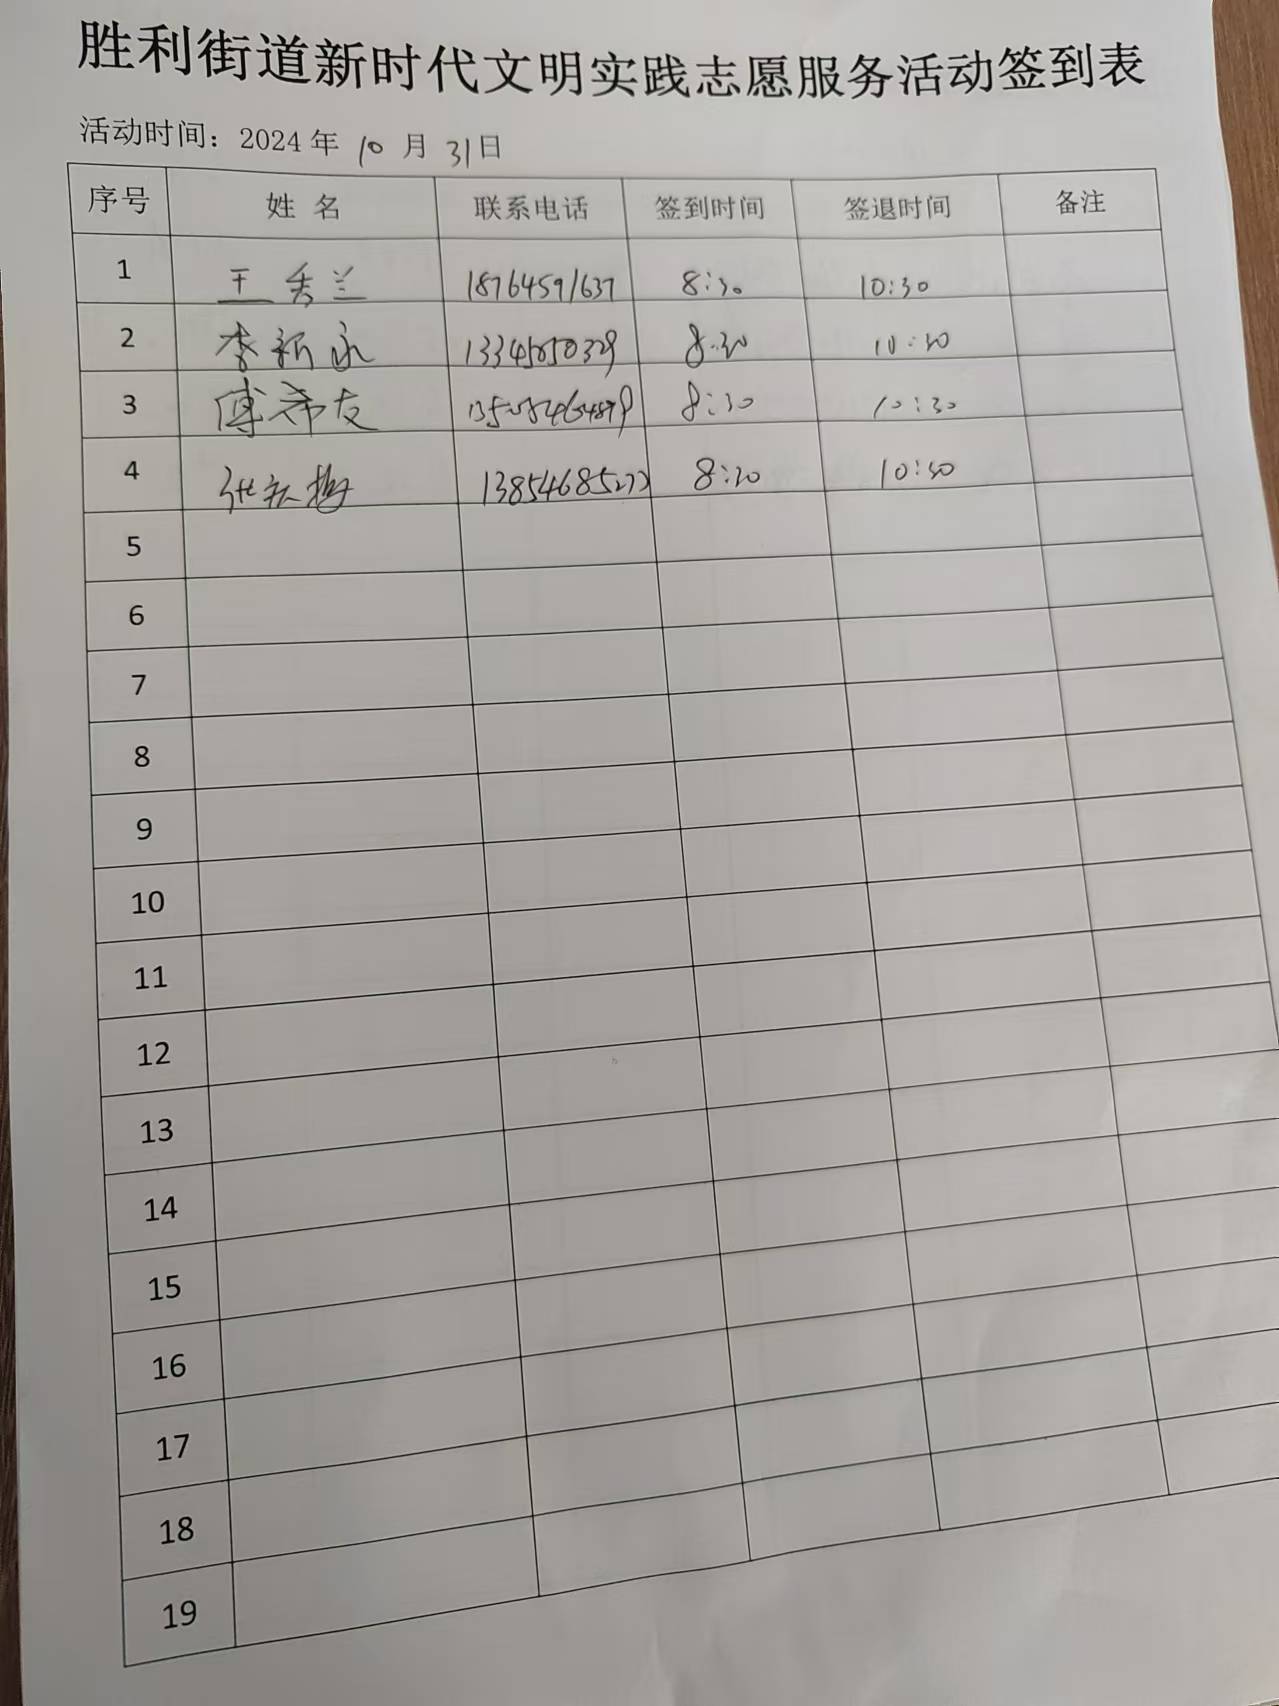 胜利街道新时代文明实践志愿服务活动签到表
活动时间：2024 年 10 月 31日
序号 姓 名 联系电话 签到时间 签退时间 备注
1 王秀兰 18764591637 8:30 10:30
2 李新永 8:30 10:30
3 傅希友 8:30 10:30
4 张 梅 8:30 10:30
5
6
7
8
9
10
11
12
13
14
15
16
17
18
19